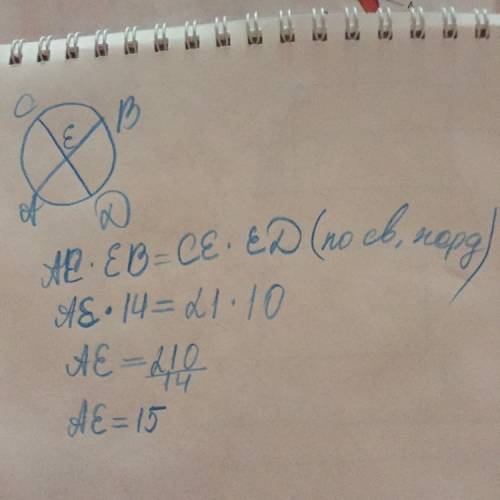 C
B
E
A
D
AE · EB = CE · ED (по св. хорд)
AE · 14 = 21 · 10
AE = 210/14
AE = 15